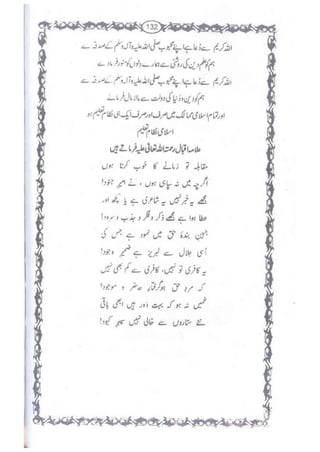 132
اللہ کریم سے دعا ہے اپنے محبوب صلی اللہ علیہ وآلہ وسلم کے صدقہ سے
ہم کو علم دین کی روشنی سے ہمارے دلوں کو منور فرمادے
اللہ کریم سے دعا ہے اپنے محبوب صلی اللہ علیہ وآلہ وسلم کے صدقہ سے
ہم کو دین و دنیا کی دولت سے مالا مال فرمائے
اور تمام اسلامی ممالک میں صرف اور صرف ایک ہی نظام تعلیم ہو
اسلامی نظام تعلیم
علامہ اقبال رحمۃ اللہ تعالیٰ علیہ فرماتے ہیں
مقابلہ تو زمانے کا خوب کرتا ہوں
اگرچہ میں نہ سپاہی ہوں ، نے امیر جنود!
مجھے یہ خبر نہیں یہ شاعری ہے یا کچھ اور
عطا ہوا ہے مجھے ذکر و فکر و جذب و سرود!
جبین بندۂ حق میں نمود ہے جس کی
اسی جلال سے لبریز ہے ضمیر وجود!
یہ کافری تو نہیں، کافری سے کم بھی نہیں
کہ مرد حق ہو گرفتار حاضر و موجود!
غمیں نہ ہو کہ بہت دور ہیں ابھی باقی
نئے ستاروں سے خالی نہیں سپہر کبود!